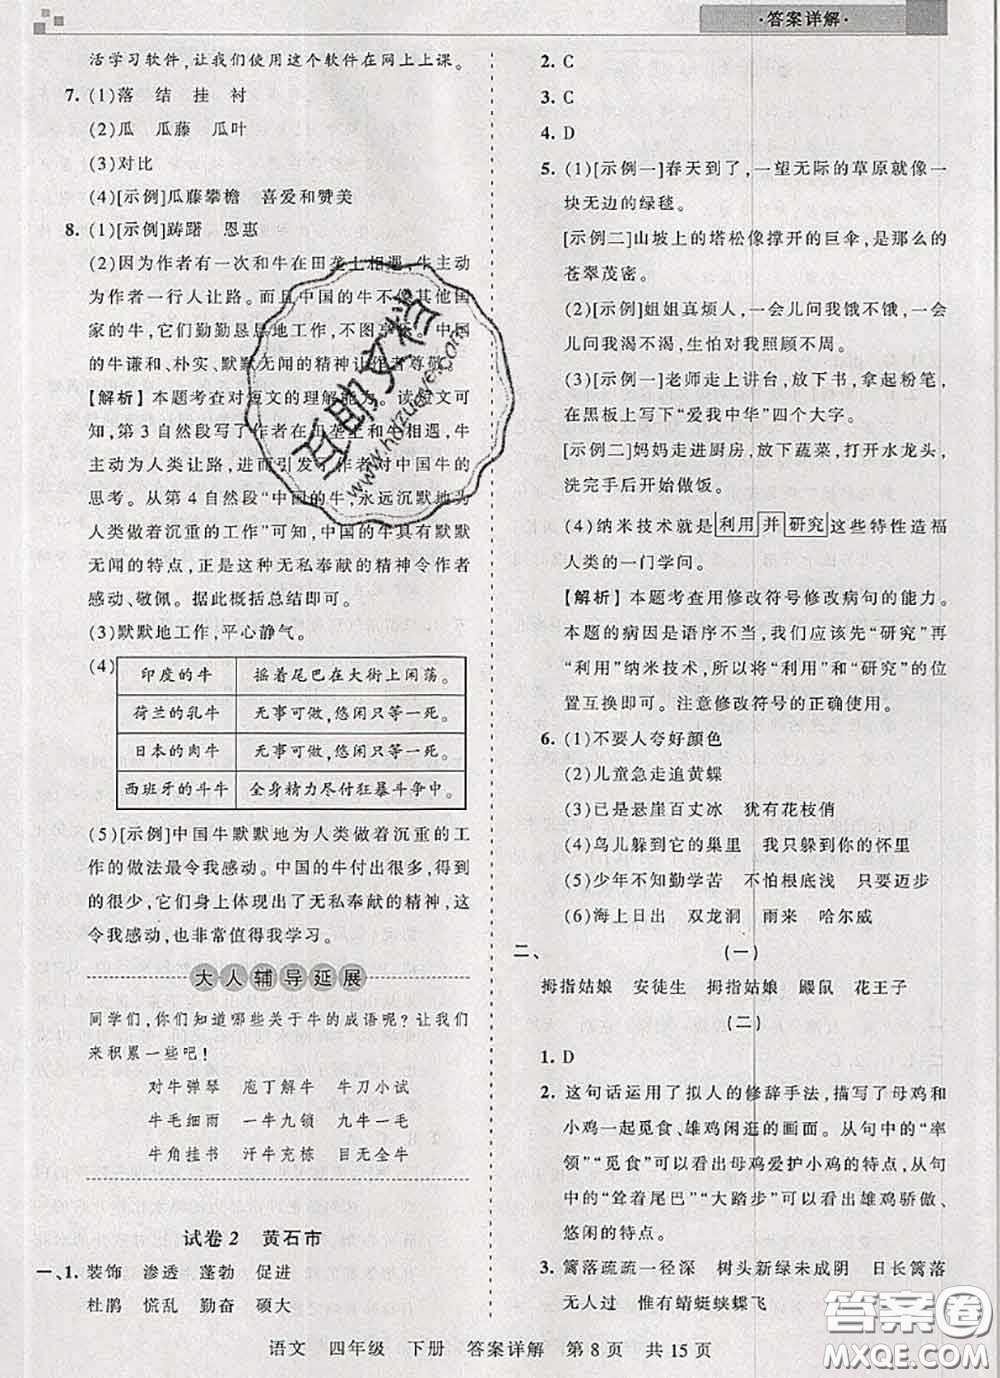 ·答案详解·
活学习软件,让我们使用这个软件在网上上课。
7. (1)落 结 挂 衬
(2)瓜 瓜藤 瓜叶
(3)对比
(4)[示例]瓜藤攀檐 喜爱和赞美
8. (1)[示例]踌躇 恩惠
(2)因为作者有一次和牛在田垄上相遇,牛主动
为作者一行人让路。而且中国的牛不像其他国
家的牛,它们勤勤恳恳地工作,不图享乐。中国
的牛谦和、朴实、默默无闻的精神让作者尊敬。
【解析】本题考查对短文的理解能力。读短文可
知,第3自然段写了作者在田垄上和牛相遇,牛
主动为人类让路,进而引发了作者对中国牛的
思考。从第4自然段“中国的牛,永远沉默地为
人类做着沉重的工作”可知,中国的牛具有默默
无闻的特点,正是这种无私奉献的精神令作者
感动、敬佩。据此概括总结即可。
(3)默默地工作,平心静气。
(4)
印度的牛 摇着尾巴在大街上闲荡。
荷兰的乳牛 无事可做,悠闲只等一死。
日本的肉牛 无事可做,悠闲只等一死。
西班牙的斗牛 全身精力尽付狂暴斗争中。
(5)[示例]中国牛默默地为人类做着沉重的工
作的做法最令我感动。中国的牛付出很多,得到
的很少,它们身上体现出了无私奉献的精神,这
令我感动,也非常值得我学习。
大人辅导延展
同学们,你们知道哪些关于牛的成语呢?让我们
来积累一些吧!
对牛弹琴 庖丁解牛 牛刀小试
牛毛细雨 一牛九锁 九牛一毛
牛角挂书 汗牛充栋 目无全牛
试卷2 黄石市
一、1. 装饰 渗透 蓬勃 促进
杜鹃 慌乱 勤奋 硕大
2. C
3. C
4. D
5. (1)[示例一]春天到了,一望无际的草原就像一
块无边的绿毯。
[示例二]山坡上的塔松像撑开的巨伞,是那么的
苍翠茂密。
(2)[示例]姐姐真烦人,一会儿问我饿不饿,一会
儿问我渴不渴,生怕对我照顾不周。
(3)[示例一]老师走上讲台,放下书,拿起粉笔,
在黑板上写下“爱我中华”四个大字。
[示例二]妈妈走进厨房,放下蔬菜,打开水龙头,
洗完手后开始做饭。
(4)纳米技术就是利用并研究这些特性造福
人类的一门学问。
【解析】本题考查用修改符号修改病句的能力。
本题的病因是语序不当,我们应该先“研究”再
“利用”纳米技术,所以将“利用”和“研究”的位
置互换即可。注意修改符号的正确使用。
6. (1)不要人夸好颜色
(2)儿童急走追黄蝶
(3)已是悬崖百丈冰 犹有花枝俏
(4)鸟儿躲到它的巢里 我只躲到你的怀里
(5)如果不知勤学苦 不怕根底浅 只要迈步
(6)海上日出 双龙洞 雨霖 哈尔威
二、 (一)
拇指姑娘 安徒生 拇指姑娘 鼹鼠 花王子
(二)
1. D
2. 这句话运用了拟人的修辞手法,描写了母鸡和
小鸡一起觅食、雄鸡闲逛的画面。从句中的“率
领”“觅食”可以看出母鸡爱护小鸡的特点,从句
中的“耸着尾巴”“大踏步”可以看出雄鸡骄傲、
悠闲的特点。
3. 篱落疏疏一径深 树头新绿未成阴 日长篱落
无人过 惟有蜻蜓蛱蝶飞
语文 四年级 下册 答案详解 第8页 共15页
互助文档
www.hdzuoye.com
答案圈
MXQE.COM